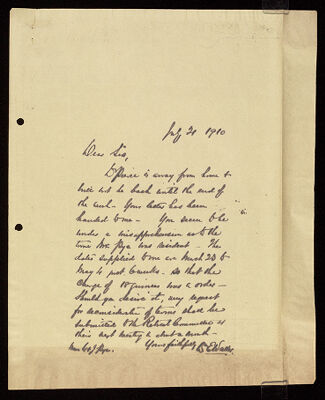 July 21 1910
Dear Sir,
Dr Pierce is away from home &
will not be back until the end of
the week - Your letter has been
handed to me - You seem to be
under a misapprehension as to the
time Mr Pye was resident - The
dates supplied to me are March 23 to
May 4 just 6 weeks - so that the
charge of 18 guineas was in order -
Should you desire it, any request
for reconsideration of terms shall be
submitted to the Retreat Committee at
their next meeting in about a month -
Yours faithfully